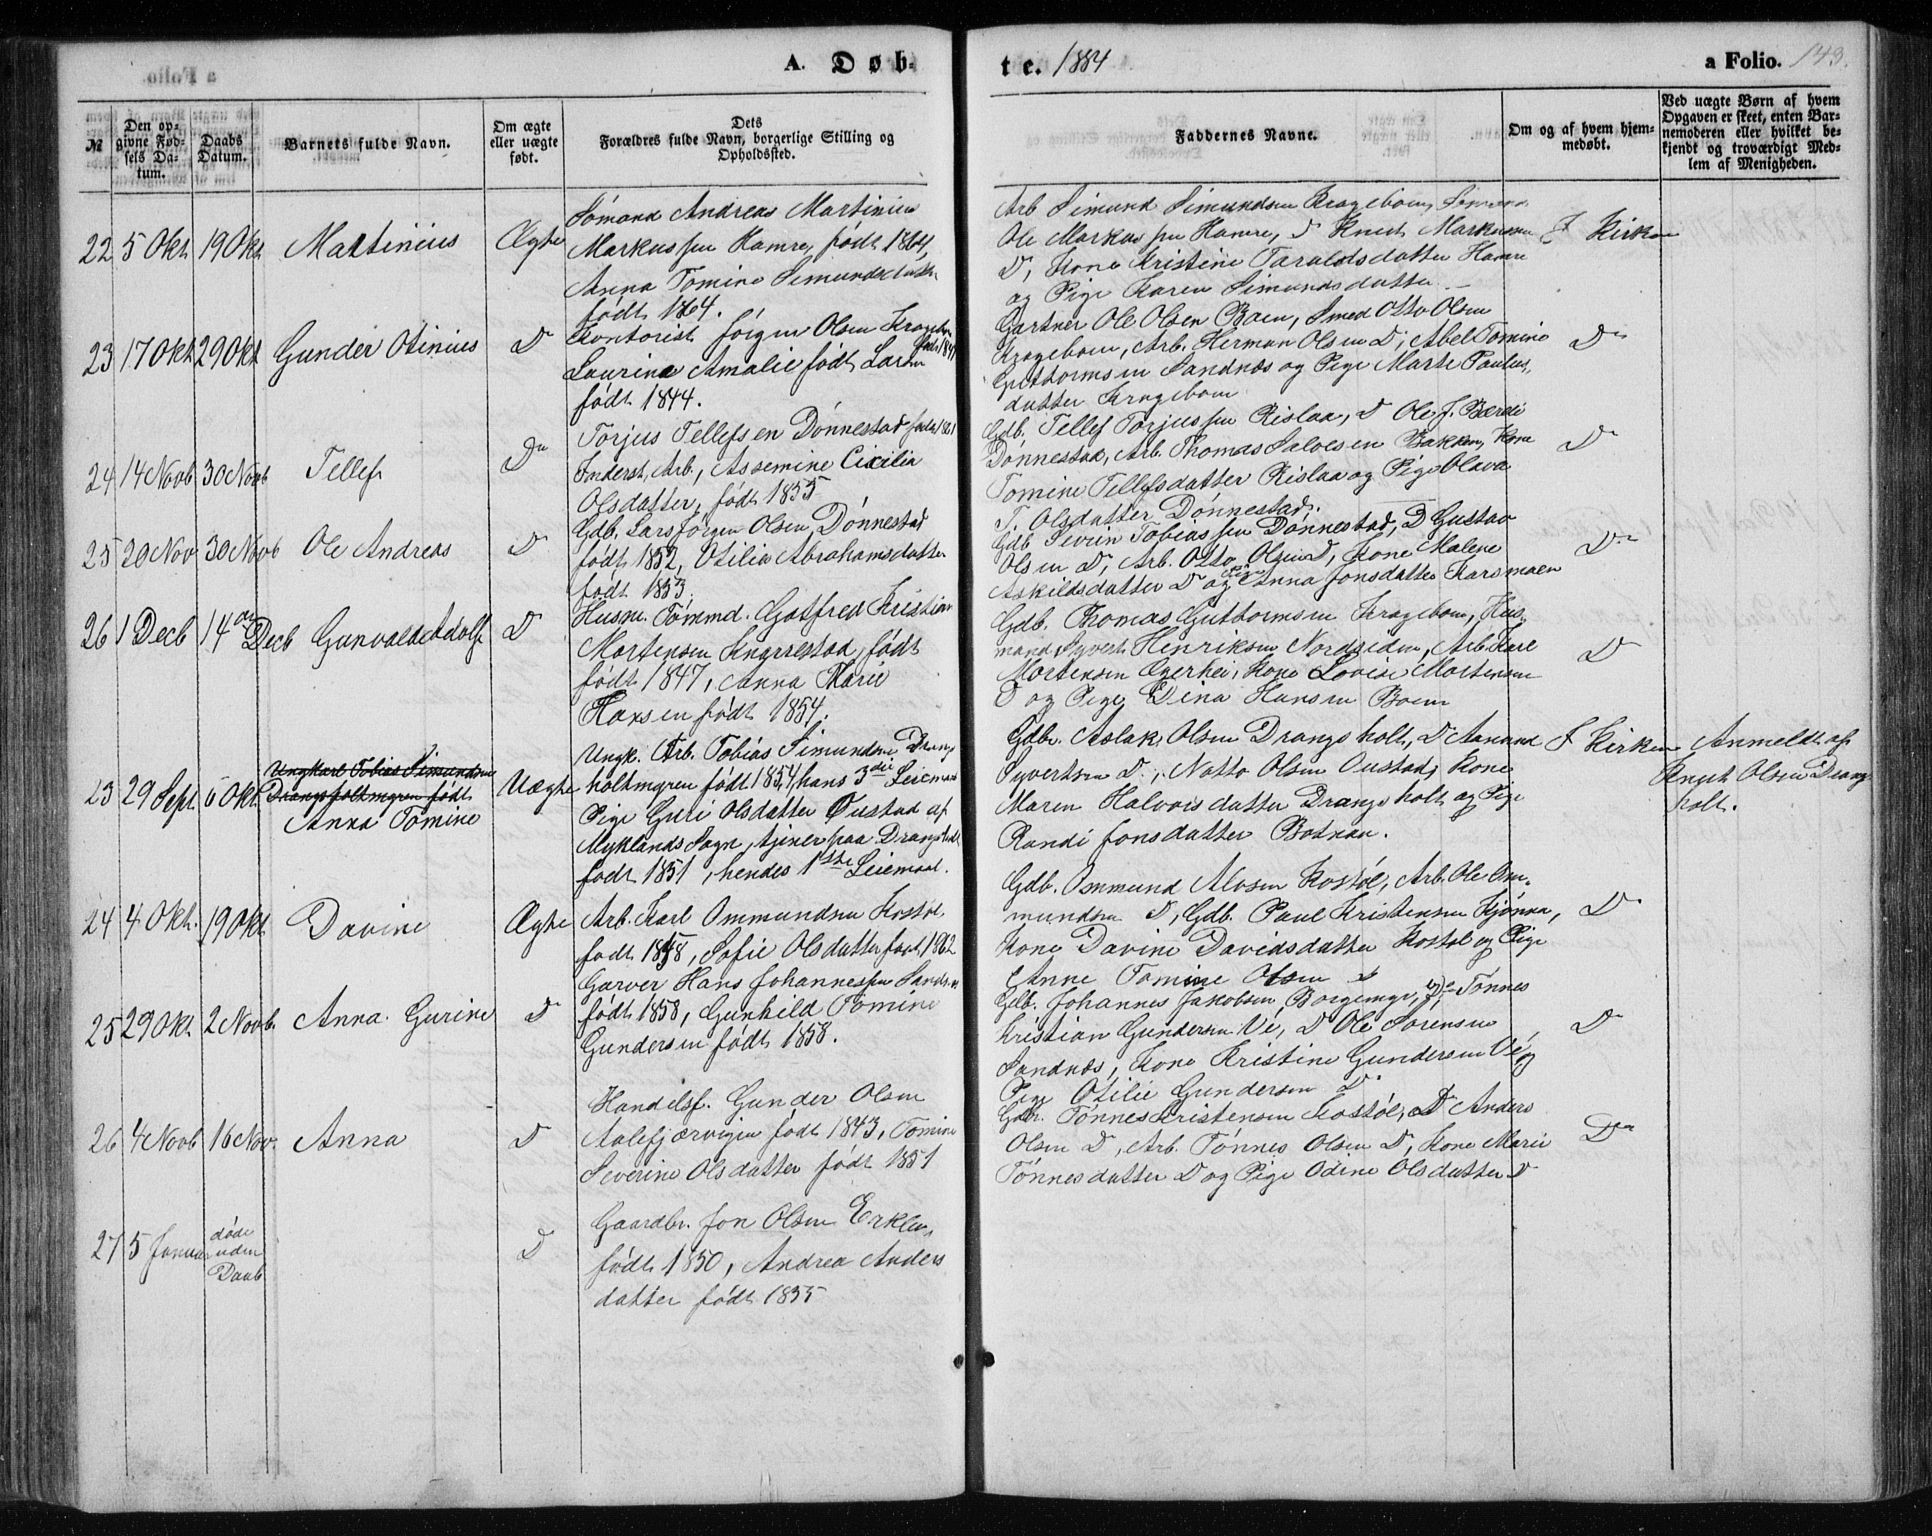 A. Døb-
te. 1884
a Folio. 143.
№
Den op-
givne Fød-
sels Da-
tum.
Daabs
Datum.
Barnets fulde Navn.
Om ægte
eller uægte
født.
Dets
Forældres fulde Navn, borgerlige Stilling og
Opholdssted.
Faddernes Navne.
Om og af hvem hjem-
medøbt.
Ved uægte Børn af hvem
Opgaven er skeet, enten Bar-
nemoderen eller hvilket be-
kjendt og troværdigt Med-
lem af Menigheden.
22 5 Okt 19 Okt Martinius Ægte
Sømand Andreas Martinius
Markussen Hamre, født 1864,
Anna Tomine Simundsdatter
født 1864.
Arb Simund Simundsen Krageboen, Sømand
Ole Markussen Hamre, D Knut Markussen
D, Kone Kristine Taraldsdatter Hamre
og Pige Karen Simundsdatter
I Kirken
23 17 Okt 29 Okt Gunder Otinius D
Kontorist Jörgen Olsen Krageboen
født 1841
Laurine Amalie født Larsen
født 1844.
Gartner Ole Olsen Boen, Smed Otto Olsen
Krageboen, Arb. Herman Olsen D, Abel Tomine
Guttormsen Sandnæs og Pige Marte Paulus,
datter Krageboen
Do
24 14 Novb 30 Novb Tellef Do
Torjus Tellefsen Dønnestad født 1861
Inderst, Arb., Assemine Cicilia
Olsdatter, født 1855
Gdb. Tellef Torjussen Rislaa, D Ole J. Bærdi
Dønnestad, Arb. Thomas Salvesen Bakken, Kone
Tomine Tellefsdatter Rislaa og Pige Olava
T. Olsdatter Dønnestad.
Do
25 20 Nov 30 Novb Ole Andreas D
Gdb. Lars Jörgen Olsen Dønnestad
født 1852, Otilia Abrahamsdatter
født 1853.
Gdb Severin Tobiassen Dønnestad, D Gustav
Olsen D, Arb. Otto Olsen D, Kone Malene
Askildsdatter D og Pige Anna Jonsdatter Karsmoen
Do
26 1 Decb 14 Decb Gunvald Adolf D
Husm. Tømmd. Gotfred Kristian
Mortensen Knarrestad, født
født 1847, Anna Marie
Hansen født 1854.
Gdb. Thomas Guttormsen Krageboen, Hus-
mand Syvert Henriksen Nordsiden, Arb. Karl
Mortensen Ægerhei, Kone Lovise Mortensen
D og Pige Dina Hansen Boen
D
23 29 Sept. 6 Okt.
Ungkarl Tobias Simundsen
Drangsholtmyren født
Anna Tomine Uægte
Ungk. Arb. Tobias Simundsen Drangs
holtmyren født 1854, hans 3die Leiermaal
Pige Guri Olsdatter Øustad af
Myklands Sogn, tjener paa Drangsholt
født 1851, hendes 1ste Leiermaal.
Gdbr. Aslak Olsen Drangsholt, D Aanund
Syvertsen D., Natto Olsen Oustad, Kone
Maren Halvorsdatter Drangsholt og Pige
Randi Jonsdatter Botnan.
I Kirken
Anmeldt af
Knut Olsen Drangs
holt.
24 4 Okt. 19 Okt. Davine Ægte
Arb. Karl Ommundsen Kostøl
født 1858, Sofie Olsdatter født 1862
Gdb. Ommund Alvsen Kostøl, Arb. Ole Om-
mundsen D, Gdb. Paul Kristensen Kjønna,
Kone Davine Davidsdatter Kostøl og Pige
Anne Tomine Olsen D
Do
25 29 Okt. 2 Novb. Anna Gurine D
Garver Hans Johannessen Sandnæs
født 1858, Gunhild Tomine
Gundersen født 1858.
Gdb. Johannes Jakobsen Borgemyr, Tønnes
Kristian Gundersen Ve, D Ole Sørensen
Sandnæs, Kone Kristine Gundersen Ve og
Pige Otilie Gundersen D.
Do
26 4 Novb 16 Nov. Anna D
Handelsf. Gunder Olsen
Aalefjærvigen født 1843, Tomine
Severine Olsdatter født 1851
Gdbr. Tønnes Kristensen Kostøl, D Anders
Olsen D, Arb. Tønnes Olsen D, Kone Marie
Tønnesdatter D og Pige Odine Olsdatter D
Do
27 5 Januar
døde
uden
Daab
D
Gaardbr. Jon Olsen Erklev,
født 1850, Andrea Anders
datter født 1855